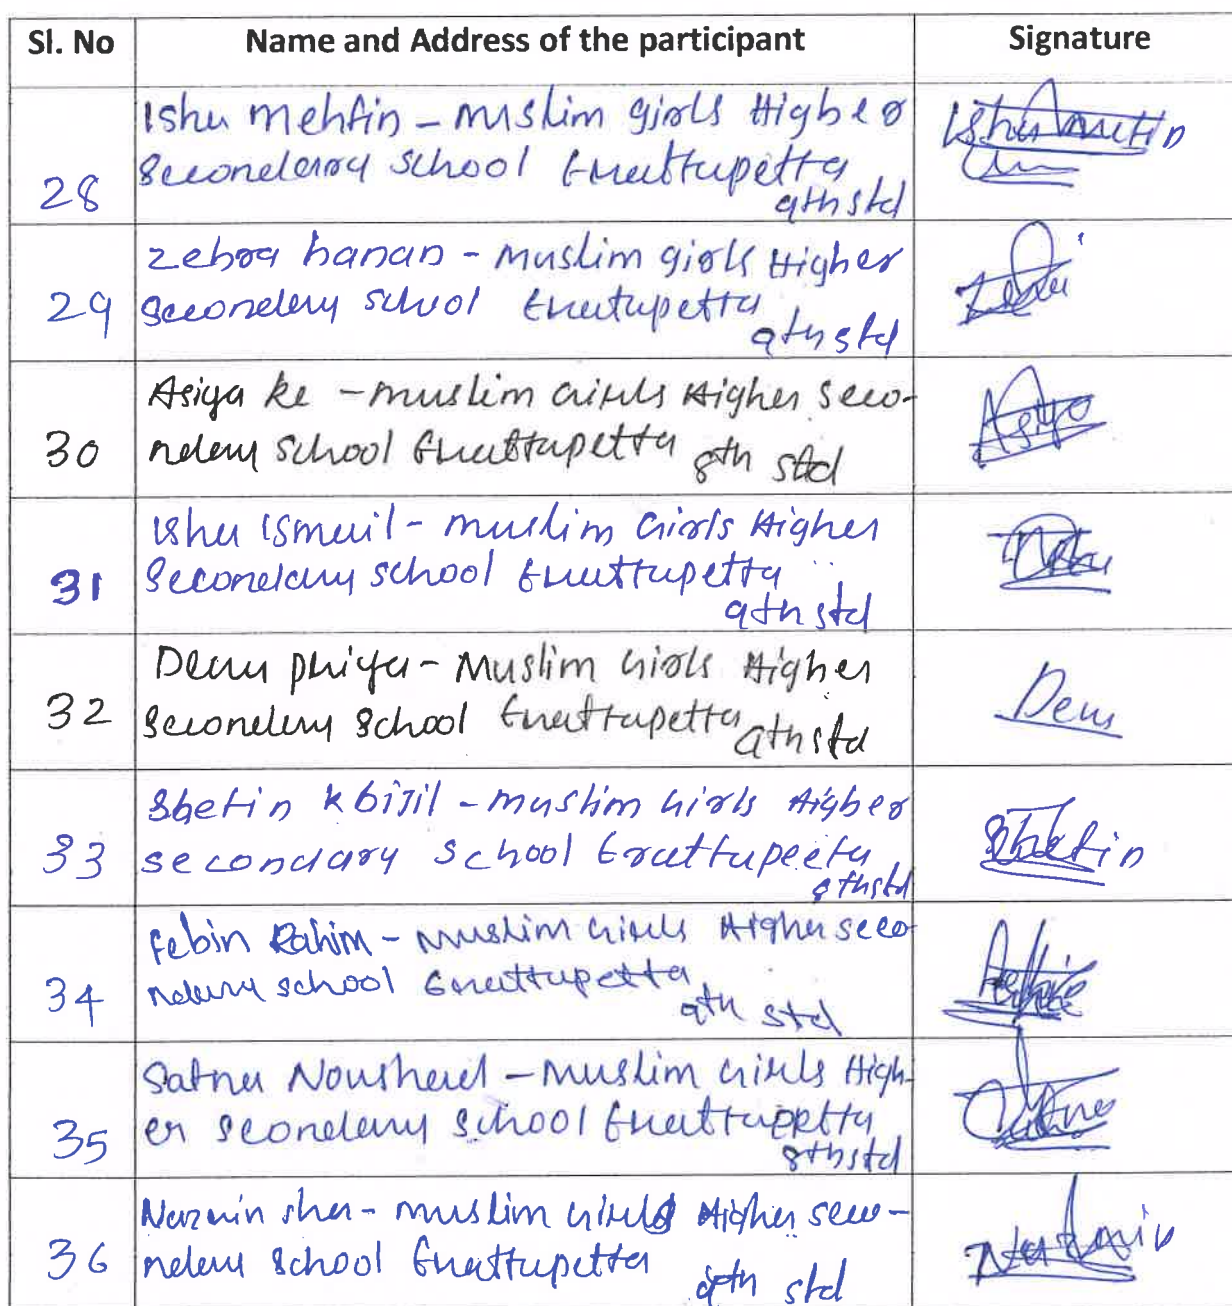 Sl. No Name and Address of the participant Signature
Ishu Mehfin - muslim girls Higher
28 Secondary School Erattupetta
9th std
Zehra hanan - muslim girls Higher
29 Secondery school Erattupetta
9th std
Asiya ke - muslim Girls Higher Seco- Asiya
30 ndery School Erattupetta 8th std
Isha Ismail - muslim Girls Higher
31 Secondary school Erattupetta
9th std
- Muslim Girls Higher
32 Secondery School Erattupetta 9th std
- muslim Girls Higher
33 secondary School Erattupeeta
std
Febin Rahim - muslim Girls Higher seco
34 ndery school Erattupetta
9th std
Noushad - muslim Girls High-
35 er Scondery School Erattuppetta
8th std
sha - muslim Girls Higher seco-
36 ndery School Erattupetta
std